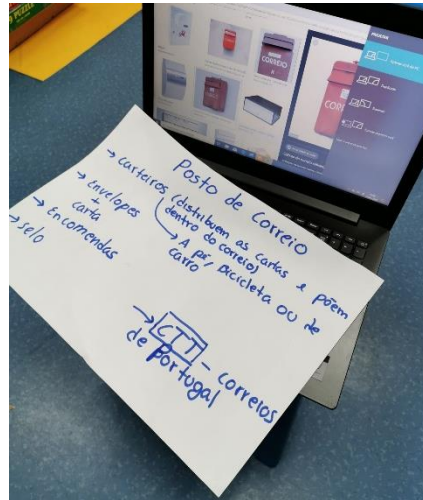 PUZZLE
CORREIO
CORREIO
Posto de Correio
→ carteiros (distribuem as cartas e põem
dentro do correio)
→ A pé/Bicicleta ou de
carro
→ Envelopes
+
carta
→ Encomendas
→ selo
→ CTT - correios
de portugal